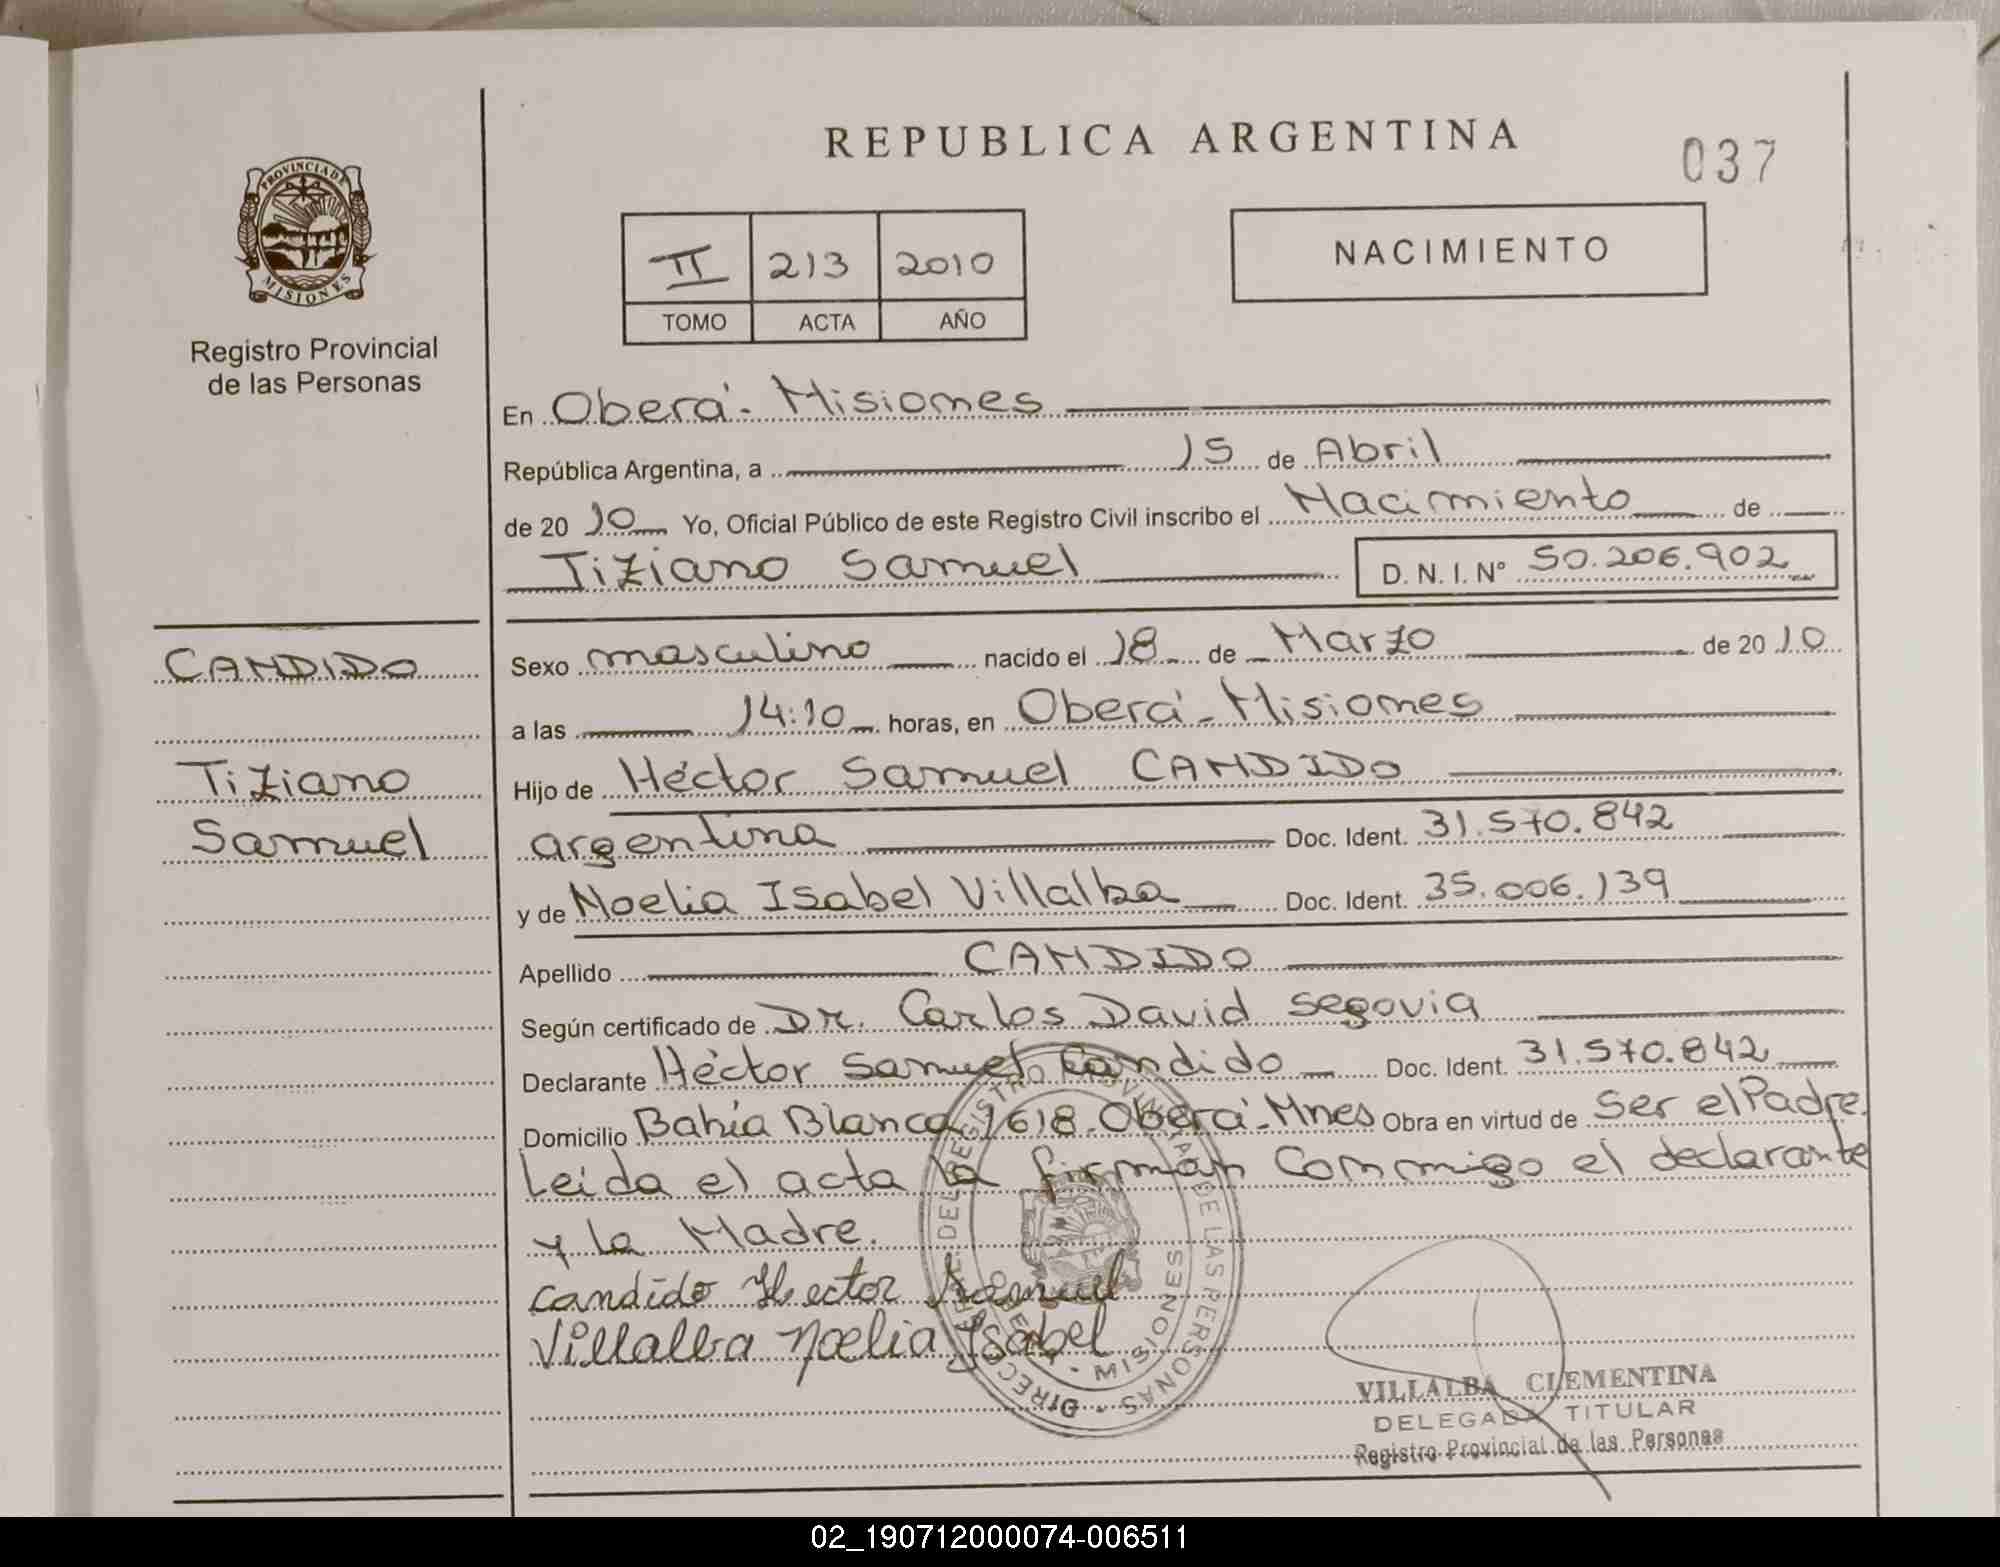 REPUBLICA ARGENTINA
037
PROVINCIA DE
MISIONES
Registro Provincial
de las Personas
II 213 2010
TOMO ACTA AÑO
NACIMIENTO
En Oberá - Misiones
República Argentina, a 15 de Abril
de 2010 Yo, Oficial Público de este Registro Civil inscribo el Nacimiento de
Tiziano Samuel D. N. I. Nº 50.206.902
CANDIDO
Tiziano
Samuel
Sexo masculino nacido el 18 de Marzo de 2010
a las 14:10 horas, en Oberá - Misiones
Hijo de Héctor Samuel CANDIDO
argentina Doc. Ident. 31.570.842
y de Noelia Isabel Villalba Doc. Ident. 35.006.139
Apellido CANDIDO
Según certificado de DR. Carlos David Segovia
Declarante Héctor Samuel Candido Doc. Ident. 31.570.842
Domicilio Bahía Blanca 1618 - Oberá - Mnes Obra en virtud de Ser el Padre.
Leida el acta la firman Conmigo el declarante
y la Madre.
candido Hector Samuel
Villalba Noelia Isabel
DEL REGISTRO PROVINCIAL DE LAS PERSONAS
MISIONES
VILLALBA CLEMENTINA
DELEGADA TITULAR
Registro Provincial de las Personas
02_190712000074-006511